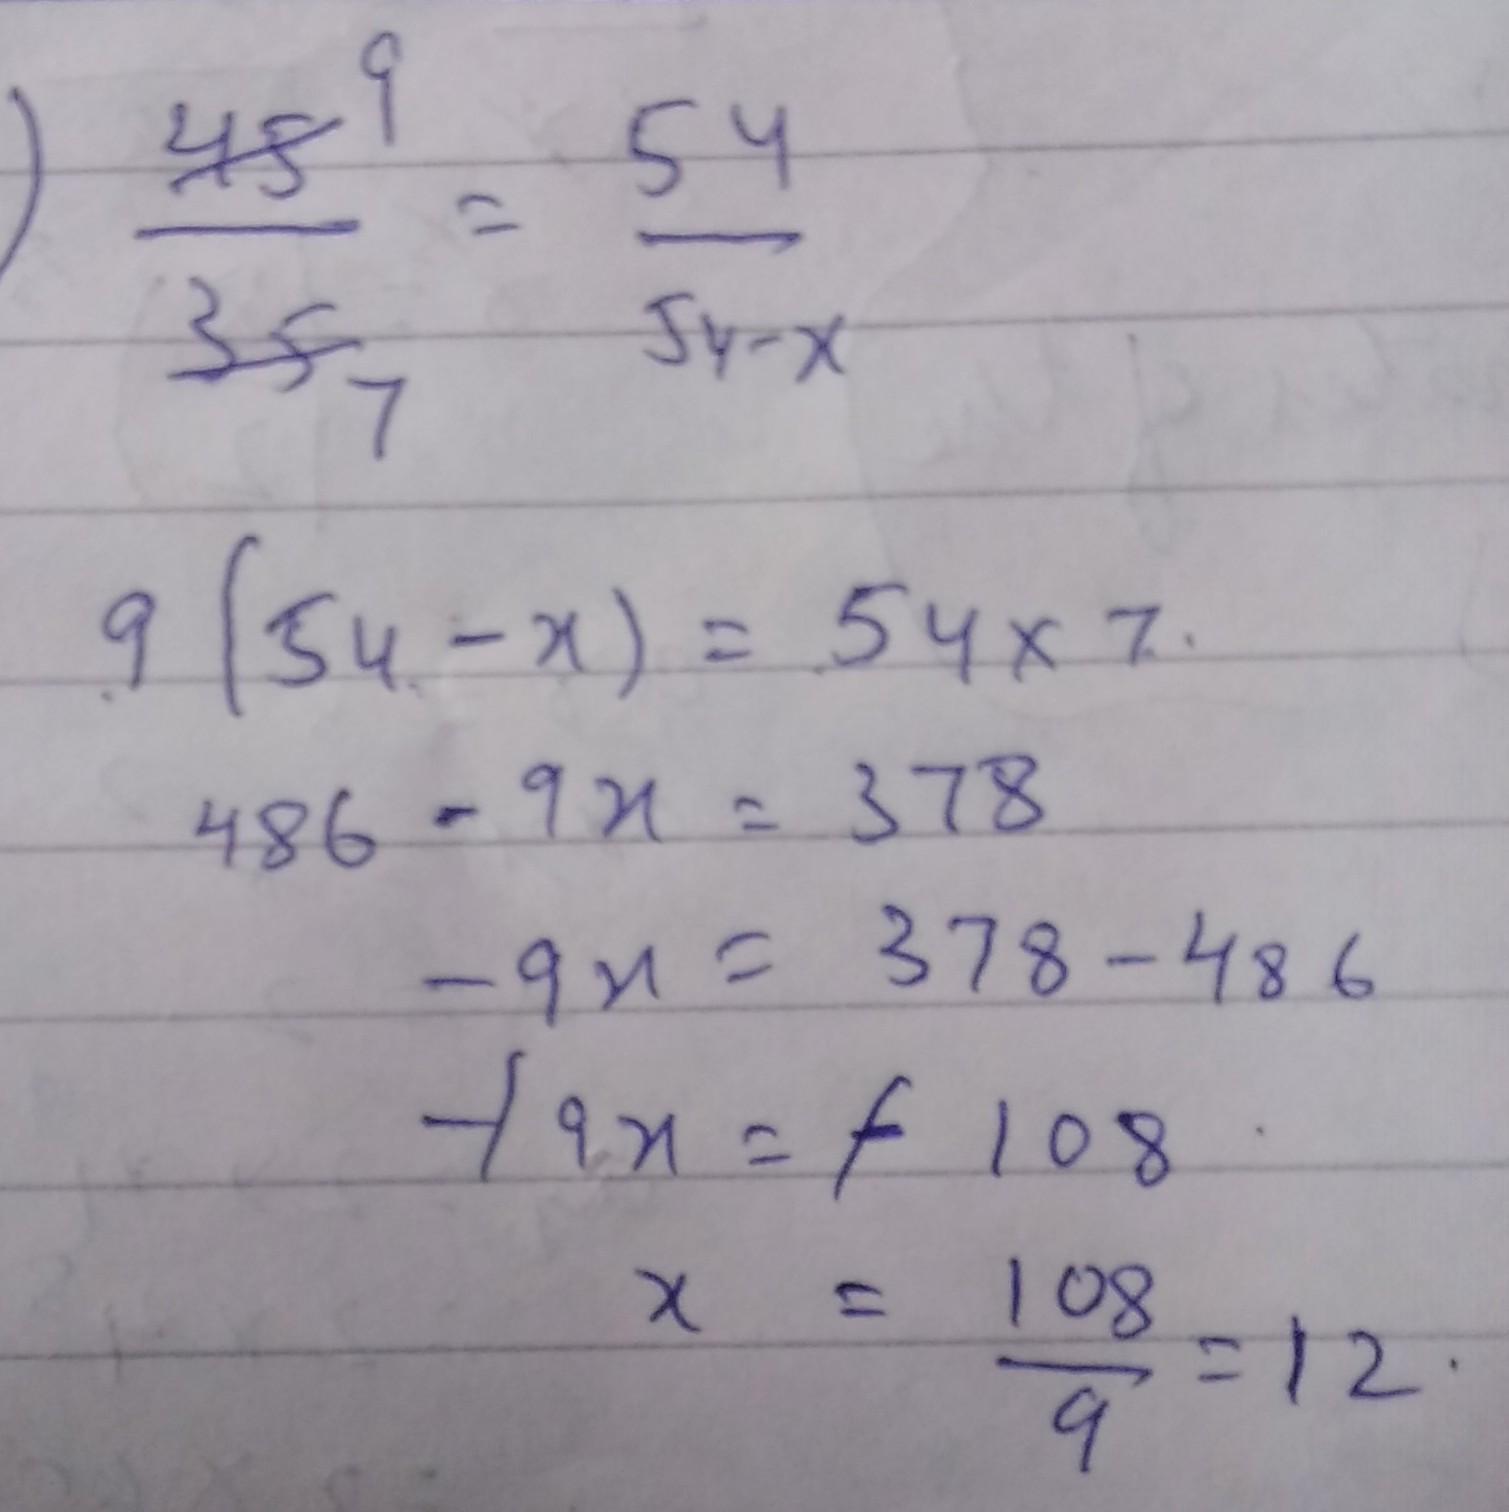 ) 45 9 = 54
35 7 54-x
9 (54 - x) = 54 x 7.
486 - 9x = 378
- 9x = 378 - 486
- 9x = - 108
x = 108 = 12.
9